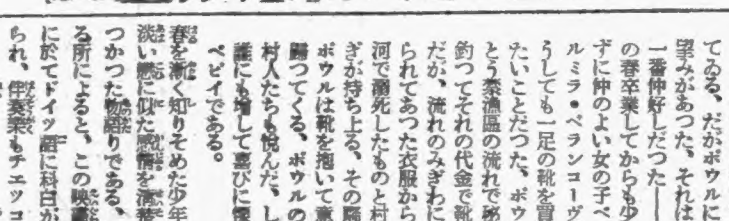 てゐる、だがポウルに
望みがあつた、それは
一番仲好しだつた——
の春卒業してからも少
ずに仲のよい女の子ペ
ルミラ・ベランコーヴ
うしても一足の靴を買
たいことだつた、ポウ
とう禁漁區の流れで
釣つてそれの代金で靴
だが、流れのみぎわに
られてあつた衣服から
河で溺死したものと村
ぎが持ち上る、その騷
ポウルは靴を抱いて
歸つてくる、ポウルの
村人たちも悦んだ、し
誰にも増して喜びに
ペピイである。
春を漸く知りそめた少年
淡い戀に似た感情を
つかつた物語りである、
る所によると、この映畫
に於てドイツ語に科白が
られ、伴奏樂もチエツコ